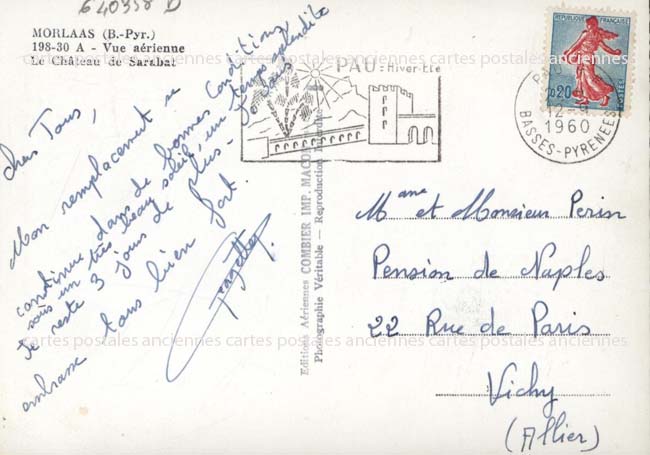 640358 D
MORLAAS (B.-Pyr.)
198-30 A - Vue aérienne
Le Château de Sarabat
Chers Tous,
Mon remplacement se
continue dans de bonnes conditions,
sous un très beau soleil, un temps splendide
Je reste 3 jours de plus - Je vous
embrasse tous bien fort.
Editions Aériennes COMBIER IMP. MACON
Photographie Véritable - Reproduction Interdite
PAU = Hiver-Eté
REPUBLIQUE FRANÇAISE
0,20
POSTES
PAU
12-9
1960
BASSES-PYRENEES
Mme et Monsieur Perin
Pension de Naples
22 Rue de Paris
Vichy
(Allier)
cartes postales anciennes cartes postales anciennes cartes postales anciennes
cartes postales anciennes cartes postales anciennes cartes postales anciennes
cartes postales anciennes cartes postales anciennes cartes postales anciennes